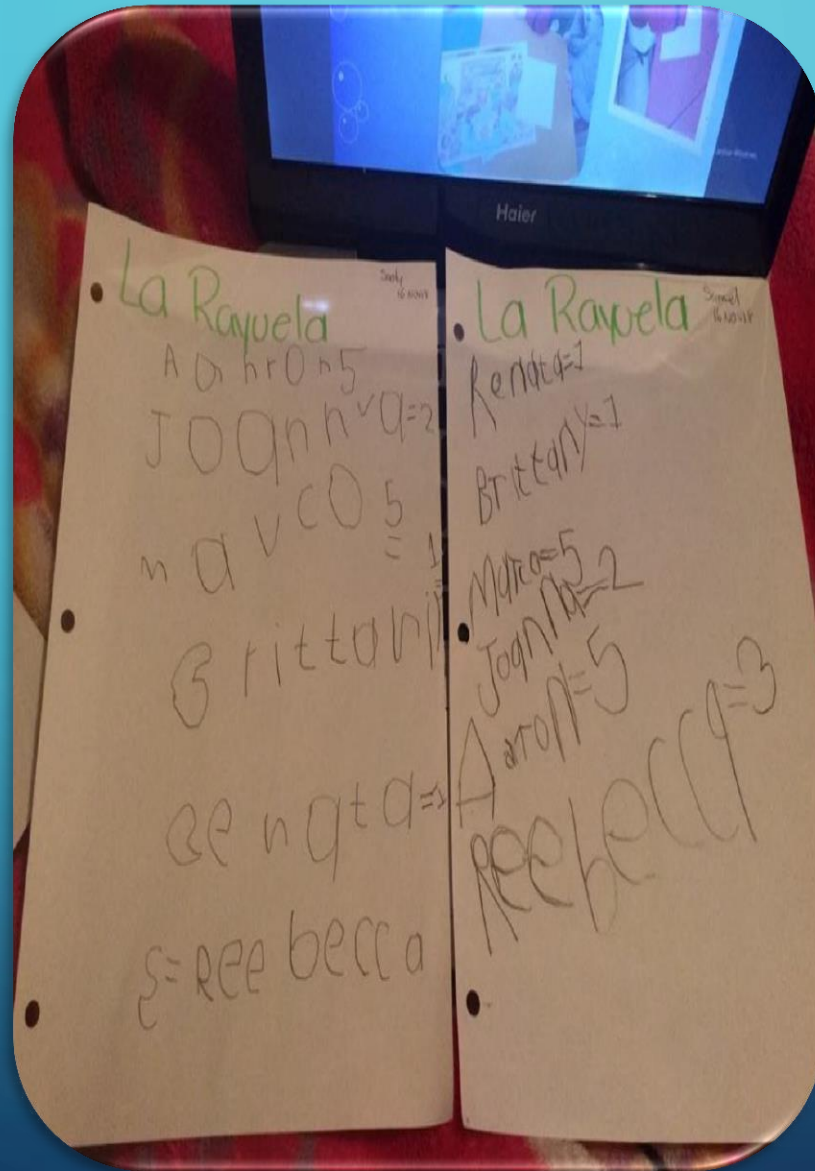 Haier
La Rayuela
16 Nov 18
A a nron 5
Joannva=2
navco 5
= 1
Brittani
Renata=1
=Reebecca
La Rayuela
Samuel
16 Nov 18
Renata=1
Brittany=1
Marco=5
Joanna=2
Aaron=5
Reebecca=3